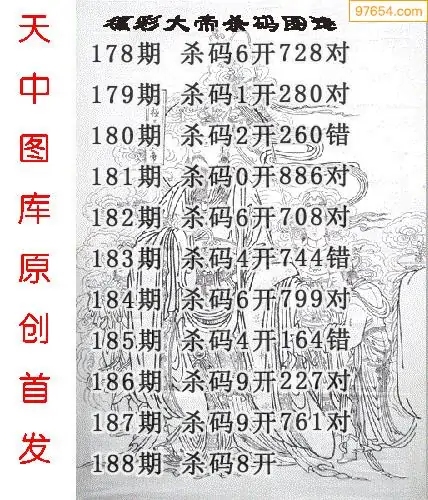 97654.com
天中图库原创首发
福彩大帝杀码图谜
178期 杀码6开728对
179期 杀码1开280对
180期 杀码2开260错
181期 杀码0开886对
182期 杀码6开708对
183期 杀码4开744错
184期 杀码6开799对
185期 杀码4开164错
186期 杀码9开227对
187期 杀码9开761对
188期 杀码8开